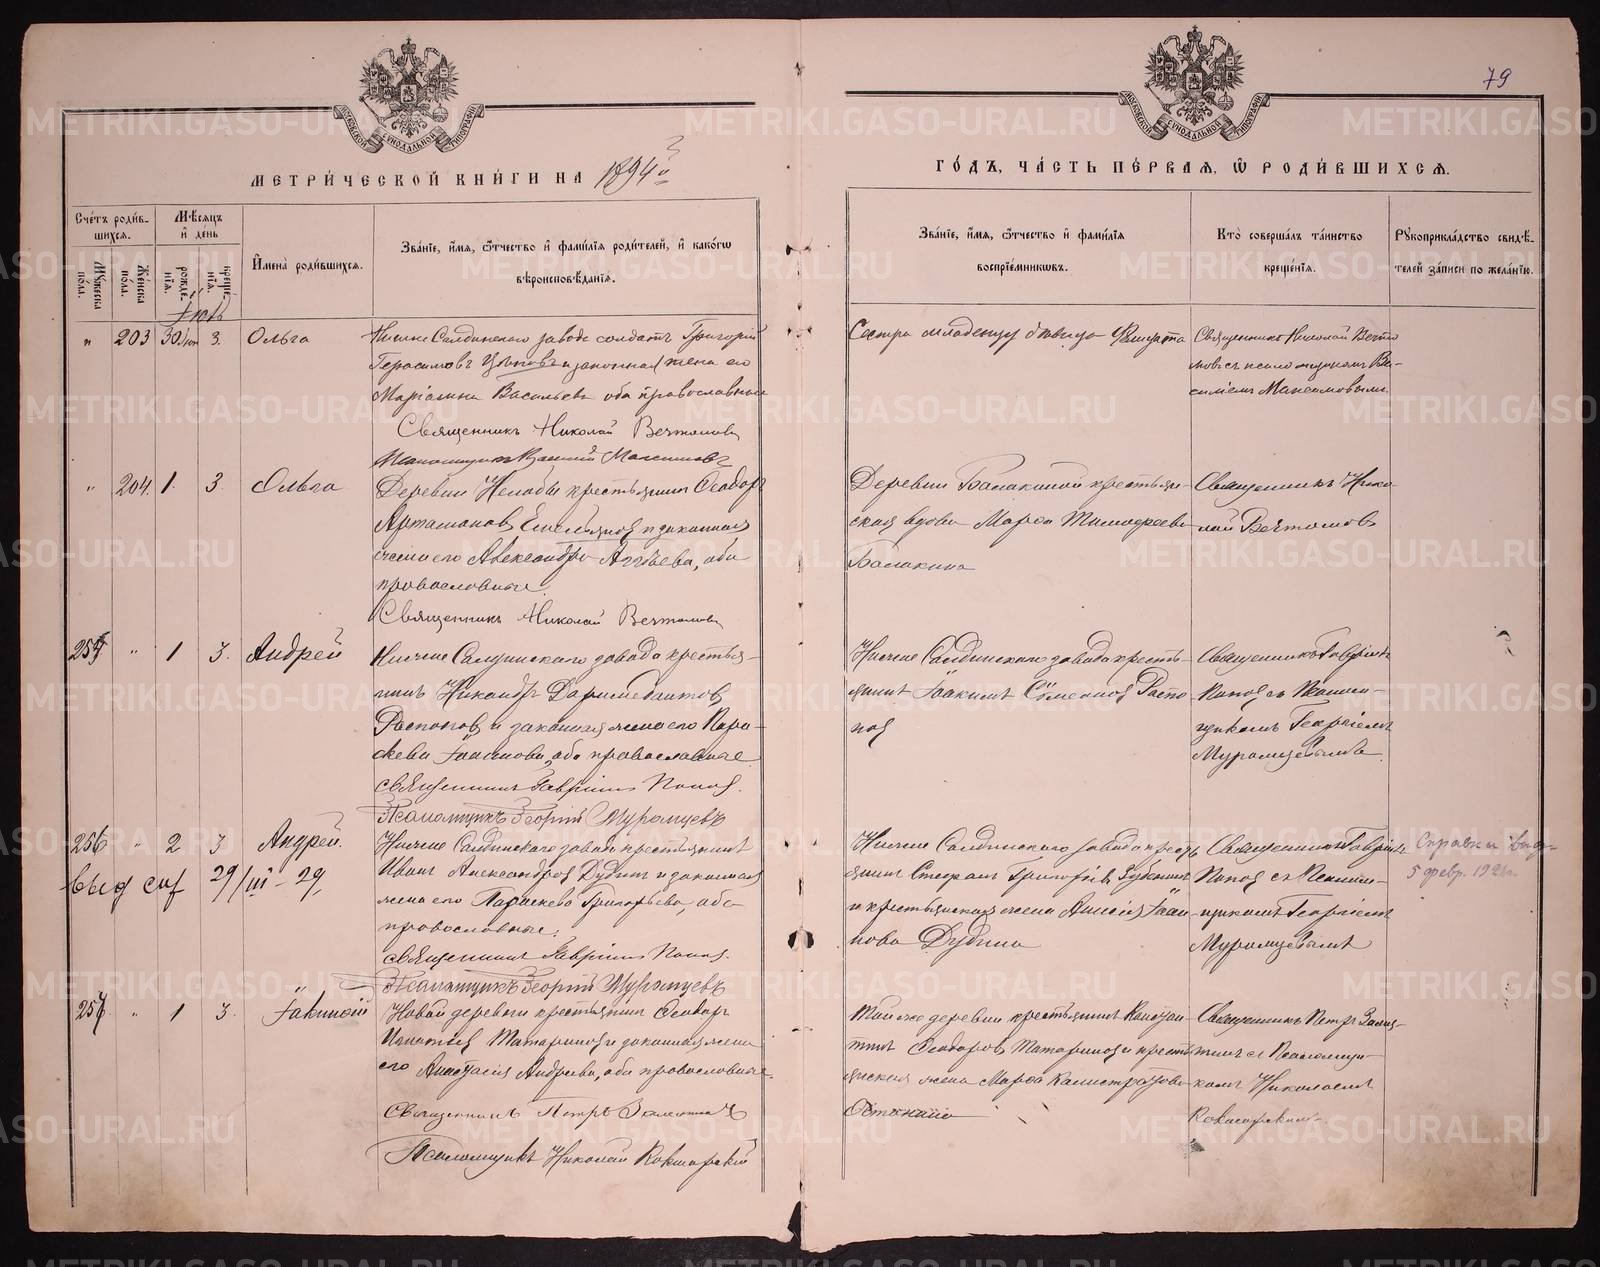 79
МЕТРИ́ЧЕСКОЙ КНИ́ГИ НА 1894й
ГО́ДЪ, ЧА́СТЬ ПЕ́РВАЯ, Ѽ РОДИ́ВШИХСЯ.
Сче́тъ роди́в-
шихся.
Му́жеска по́ла.
Же́нска по́ла.
Мѣ́сяцъ
и҆ де́нь
рожде́нїя.
креще́нїя.
И҆мена̀ роди́вшихся.
Зва́нїе, и҆́мя, ѻ҆́тчество и҆ фами́лїя роди́телей, и҆ како́гѡ
вѣроисповѣ́данїя.
Зва́нїе, и҆́мя, ѻ҆́тчество и҆ фами́лїя
воспрїе́мникѡвъ.
Кто̀ соверша́лъ та́инство
креще́нїя.
Рꙋкоприкла́дство свидѣ́-
телей за́писи по жела́нїю.
Іюль
„ 203 30 Іюн 3. Ольга
Нижне Салдинскаго завода солдатъ Григорій
Герасимовъ и законная жена его
Васильева оба православные
Священникъ Николай Вечтомовъ
Василій Максимовъ
Сестра младенцу дѣвица
Священникъ Николай Вечто
мовъ съ псаломщикомъ Ва-
силіемъ Максимовымъ
„ 204. 1. 3. Ольга
Деревни Нелобы крестьянинъ Ѳеодоръ
Артамоновъ Емельяновъ и законная
жена его Александра Аггѣева, оба
православные.
Священникъ Николай Вечтомовъ
Деревни Балакиной крестьян-
ская вдова Марѳа Тимоѳеева
Балакина
Священникъ Нико-
лай Вечтомовъ
255 „ 1 3. Андрей
Нижне Салдинскаго завода крестья-
нинъ Никандръ
Распоповъ и законная жена его Пара-
скева оба православные
священникъ Гавріилъ Поповъ.
Псаломщикъ Георгій Муромцевъ
Нижне Салдинскаго завода кресть-
янинъ Іоакимъ Распо
повъ
Священникъ Гавріилъ
Поповъ съ Псалом-
щикомъ Георгіемъ
Муромцевымъ
256 „ 2 3 Андрей.
выд спр 29/III – 29,
Нижне Салдинскаго завода крестьянинъ
Иванъ Александровъ Дудинъ и законная
жена его Параскева Григорьева, оба
православные.
священникъ Гавріилъ Поповъ.
Псаломщикъ Георгій Муромцевъ
Нижне Салдинскаго завода кресть
янинъ Стефанъ Григорьевъ
и крестьянская жена Анисія Іоан-
нова Дудина
Священникъ Гавріилъ
Поповъ съ Псалом-
щикомъ Георгіемъ
Муромцевымъ
Справка выд-
5 февр.
257 „ 1 3. Іакинѳій
Новой деревни крестьянинъ Ѳеодоръ
Игнатьевъ Татариновъ и законная жена
его Анастасія Андреева, оба православные.
Священникъ Петръ
Псаломщикъ Николай Кокшарскій
Той же деревни крестьянинъ Констан-
тинъ Ѳеодоровъ Татариновъ и кресть
янская жена Марѳа Калистратова
Останина
Священникъ Петръ
съ Псаломщи-
комъ Николаемъ
Кокшарскимъ.
METRIKI.GASO-URAL.RU